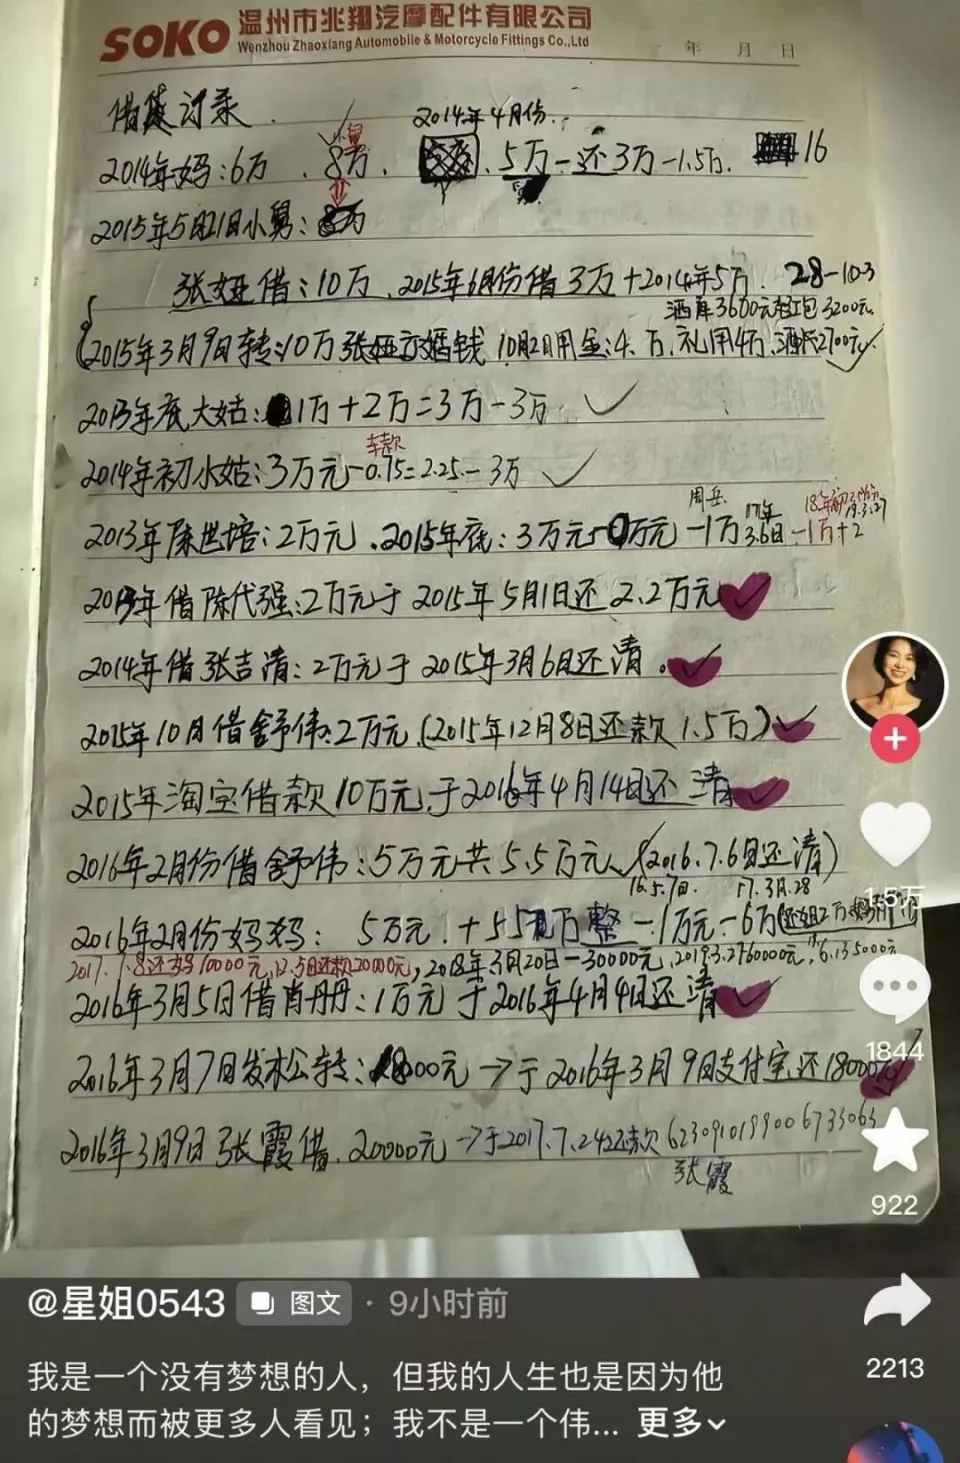 SOKO 温州市兆翔汽摩配件有限公司
Wenzhou Zhaoxiang Automobile & Motorcycle Fittings Co.,Ltd
年 月 日
借贷记录.
2014年4月份.
2014年妈:6万、8万、5万-还3万-1.5万. 16
2015年5月21日小舅:
张娅借:10万、2015年6月份借3万+2014年5万. 28-10.3
酒席3600元 红包3200元
2015年3月9日转:10万张娅 婚钱 10月2日用金:4.万、礼用4万、酒
2013年底大姑:1万+2万=3万-3万
车款
2014年初小姑:3万元-0.75=2.25-3万
周岳
2013年陈世培:2万元、2015年底:3万元 万元-1万 17年3.6日-1万+2
2013年借陈代强:2万元于2015年5月1日还2.2万元
2014年借张吉清:2万元于2015年3月6日还清.
2015年10月借舒伟:2万元(2015年12月8日还款1.5万)
2015年淘宝借款10万元于2016年4月14日还清
2016年2月份借舒伟:5万元共5.5万元(2016.7.6日还清)
16.5.7日. 17.3月.28
2016年2月份妈妈: 5万元.+5.5万整-1万元-6万
2017.7.8还妈10000元,12.5日还款20000元,2018年3月20日-30000元
2016年3月5日借肖丹丹:1万元于2016年4月4日还清
2016年3月7日发松转:18000元→于2016年3月9日支付宝还18000元
2016年3月9日张霞借.20000元→于2017.7.24还款6230910199006733063
张霞
1.5万
1844
922
2213
@星姐0543 图文 · 9小时前
我是一个没有梦想的人，但我的人生也是因为他
的梦想而被更多人看见；我不是一个伟... 更多